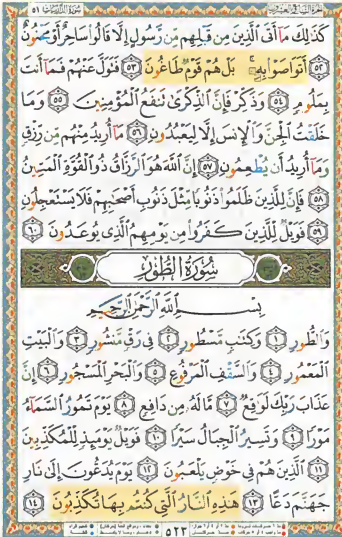 سُورَةُ الذَّارِيَاتِ ٥١
كَذَٰلِكَ مَآ أَتَى ٱلَّذِينَ مِن قَبْلِهِم مِّن رَّسُولٍ إِلَّا قَالُوا۟ سَاحِرٌ أَوْ مَجْنُونٌ
٥٢ أَتَوَاصَوْا۟ بِهِۦ ۚ بَلْ هُمْ قَوْمٌ طَاغُونَ ٥٣ فَتَوَلَّ عَنْهُمْ فَمَآ أَنتَ
بِمَلُومٍ ٥٤ وَذَكِّرْ فَإِنَّ ٱلذِّكْرَىٰ تَنفَعُ ٱلْمُؤْمِنِينَ ٥٥ وَمَا
خَلَقْتُ ٱلْجِنَّ وَٱلْإِنسَ إِلَّا لِيَعْبُدُونِ ٥٦ مَآ أُرِيدُ مِنْهُم مِّن رِّزْقٍ
وَمَآ أُرِيدُ أَن يُطْعِمُونِ ٥٧ إِنَّ ٱللَّهَ هُوَ ٱلرَّزَّاقُ ذُو ٱلْقُوَّةِ ٱلْمَتِينُ
٥٨ فَإِنَّ لِلَّذِينَ ظَلَمُوا۟ ذَنُوبًا مِّثْلَ ذَنُوبِ أَصْحَٰبِهِمْ فَلَا يَسْتَعْجِلُونِ
٥٩ فَوَيْلٌ لِّلَّذِينَ كَفَرُوا۟ مِن يَوْمِهِمُ ٱلَّذِى يُوعَدُونَ ٦٠
سُورَةُ الطُّورِ
بِسْمِ ٱللَّهِ ٱلرَّحْمَٰنِ ٱلرَّحِيمِ
وَٱلطُّورِ ١ وَكِتَٰبٍ مَّسْطُورٍ ٢ فِى رَقٍّ مَّنشُورٍ ٣ وَٱلْبَيْتِ
ٱلْمَعْمُورِ ٤ وَٱلسَّقْفِ ٱلْمَرْفُوعِ ٥ وَٱلْبَحْرِ ٱلْمَسْجُورِ ٦ إِنَّ
عَذَابَ رَبِّكَ لَوَٰقِعٌ ٧ مَّا لَهُۥ مِن دَافِعٍ ٨ يَوْمَ تَمُورُ ٱلسَّمَآءُ
مَوْرًا ٩ وَتَسِيرُ ٱلْجِبَالُ سَيْرًا ١٠ فَوَيْلٌ يَوْمَئِذٍ لِّلْمُكَذِّبِينَ
١١ ٱلَّذِينَ هُمْ فِى خَوْضٍ يَلْعَبُونَ ١٢ يَوْمَ يُدَعُّونَ إِلَىٰ نَارِ
جَهَنَّمَ دَعًّا ١٣ هَٰذِهِ ٱلنَّارُ ٱلَّتِى كُنتُم بِهَا تُكَذِّبُونَ ١٤
٥٢٣